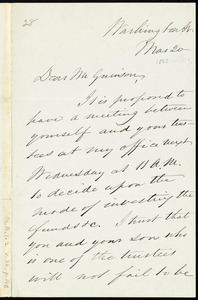 28
Washington St.
Mar 20
Dear Mr Garrison,
It is proposed to
have a meeting between
yourself and your trus-
tees at my office next
Wednesday at 11 A.M.
to decide upon the
mode of investing the
funds &c. I trust that
you and your son who
is one of the trustees
will not fail to be